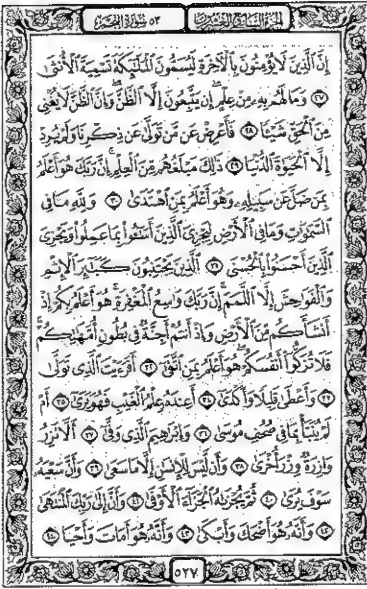 الجزء السابع والعشرون ٥٣ سورة النجم
إِنَّ ٱلَّذِينَ لَا يُؤْمِنُونَ بِٱلْأَخِرَةِ لَيُسَمُّونَ ٱلْمَلَٰٓئِكَةَ تَسْمِيَةَ ٱلْأُنثَىٰ
٢٧ وَمَا لَهُم بِهِۦ مِنْ عِلْمٍ إِن يَتَّبِعُونَ إِلَّا ٱلظَّنَّ وَإِنَّ ٱلظَّنَّ لَا يُغْنِى
مِنَ ٱلْحَقِّ شَيْـًٔا ٢٨ فَأَعْرِضْ عَن مَّن تَوَلَّىٰ عَن ذِكْرِنَا وَلَمْ يُرِدْ
إِلَّا ٱلْحَيَوٰةَ ٱلدُّنْيَا ٢٩ ذَٰلِكَ مَبْلَغُهُم مِّنَ ٱلْعِلْمِ إِنَّ رَبَّكَ هُوَ أَعْلَمُ
بِمَن ضَلَّ عَن سَبِيلِهِۦ وَهُوَ أَعْلَمُ بِمَنِ ٱهْتَدَىٰ ٣٠ وَلِلَّهِ مَا فِى
ٱلسَّمَٰوَٰتِ وَمَا فِى ٱلْأَرْضِ لِيَجْزِىَ ٱلَّذِينَ أَسَٰٓـُٔوا۟ بِمَا عَمِلُوا۟ وَيَجْزِىَ
ٱلَّذِينَ أَحْسَنُوا۟ بِٱلْحُسْنَى ٣١ ٱلَّذِينَ يَجْتَنِبُونَ كَبَٰٓئِرَ ٱلْإِثْمِ
وَٱلْفَوَٰحِشَ إِلَّا ٱللَّمَمَ إِنَّ رَبَّكَ وَٰسِعُ ٱلْمَغْفِرَةِ هُوَ أَعْلَمُ بِكُمْ إِذْ
أَنشَأَكُم مِّنَ ٱلْأَرْضِ وَإِذْ أَنتُمْ أَجِنَّةٌ فِى بُطُونِ أُمَّهَٰتِكُمْ
فَلَا تُزَكُّوٓا۟ أَنفُسَكُمْ هُوَ أَعْلَمُ بِمَنِ ٱتَّقَىٰٓ ٣٢ أَفَرَءَيْتَ ٱلَّذِى تَوَلَّىٰ
٣٣ وَأَعْطَىٰ قَلِيلًا وَأَكْدَىٰٓ ٣٤ أَعِندَهُۥ عِلْمُ ٱلْغَيْبِ فَهُوَ يَرَىٰٓ ٣٥ أَمْ
لَمْ يُنَبَّأْ بِمَا فِى صُحُفِ مُوسَىٰ ٣٦ وَإِبْرَٰهِيمَ ٱلَّذِى وَفَّىٰٓ ٣٧ أَلَّا تَزِرُ
وَازِرَةٌ وِزْرَ أُخْرَىٰ ٣٨ وَأَن لَّيْسَ لِلْإِنسَٰنِ إِلَّا مَا سَعَىٰ ٣٩ وَأَنَّ سَعْيَهُۥ
سَوْفَ يُرَىٰ ٤٠ ثُمَّ يُجْزَىٰهُ ٱلْجَزَآءَ ٱلْأَوْفَىٰ ٤١ وَأَنَّ إِلَىٰ رَبِّكَ ٱلْمُنتَهَىٰ
٤٢ وَأَنَّهُۥ هُوَ أَضْحَكَ وَأَبْكَىٰ ٤٣ وَأَنَّهُۥ هُوَ أَمَاتَ وَأَحْيَا ٤٤
٥٢٧